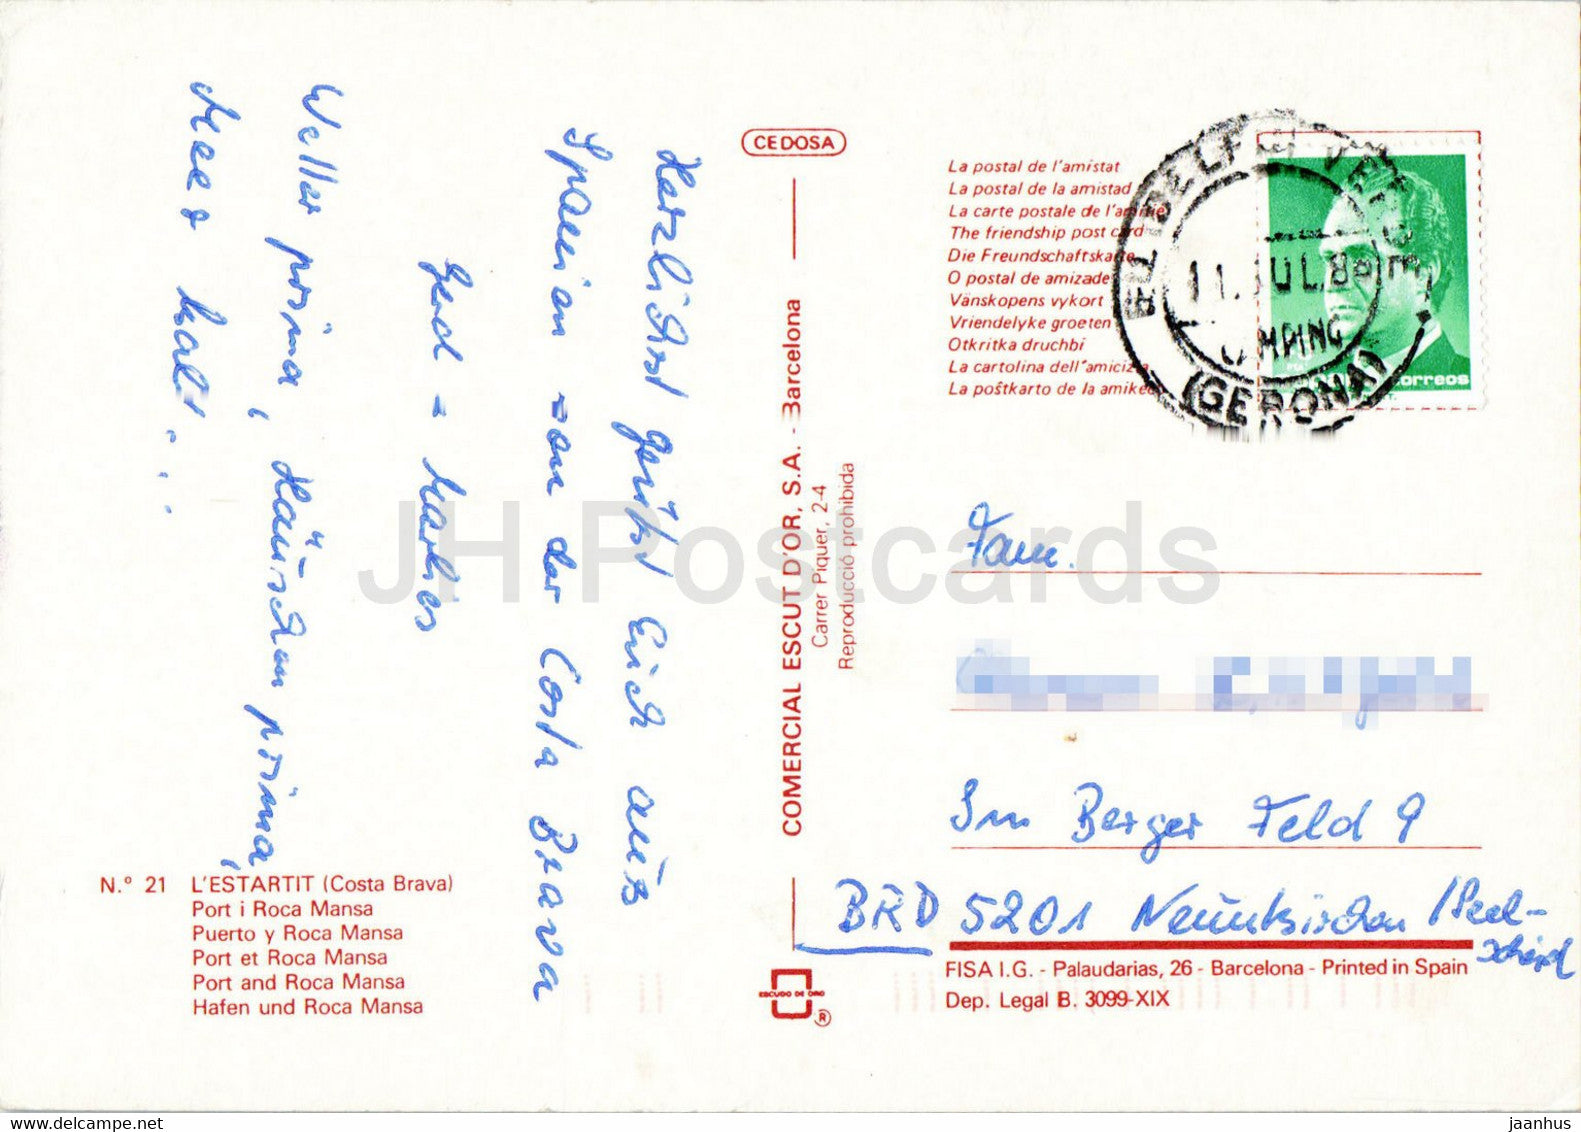 CEDOSA
La postal de l'amistat
La postal de la amistad
La carte postale de l'amitié
The friendship post card
Die Freundschaftskarte
O postal de amizade
Vänskopens vykort
Vriendelyke groeten
Otkritka druchbi
La cartolina dell'amicizia
La poŝtkarto de la amikeco
11. JUL. 86
CAMPING
(GERONA)
correos
Herzlichst grüßt Euch aus
Spanien von der Costa Brava
Gerd + Marlies
Wetter prima, Häuschen prima,
Meer kalt...
COMERCIAL ESCUT D'OR, S.A. - Barcelona
Carrer Piquer, 2-4
Reproducció prohibida
Fam.
Im Berger Feld 9
BRD 5201 Neunkirchen /Seel-
scheid
N.º 21 L'ESTARTIT (Costa Brava)
Port i Roca Mansa
Puerto y Roca Mansa
Port et Roca Mansa
Port and Roca Mansa
Hafen und Roca Mansa
ESCUDO DE ORO
®
FISA I.G. - Palaudarias, 26 - Barcelona - Printed in Spain
Dep. Legal B. 3099-XIX
JH Postcards
www.delcampe.net
jaanhus